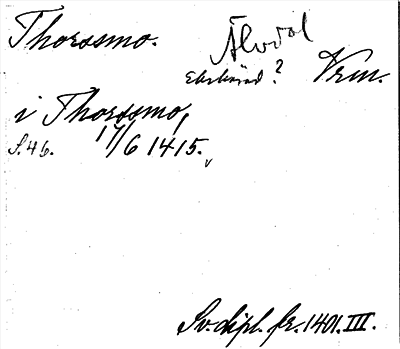 Thorssmo. Älvdal
Ekshärad? Vrm.
i Thorssmo,
S. 46. 17/6 1415.
Sv. dipl. fr. 1401. III.